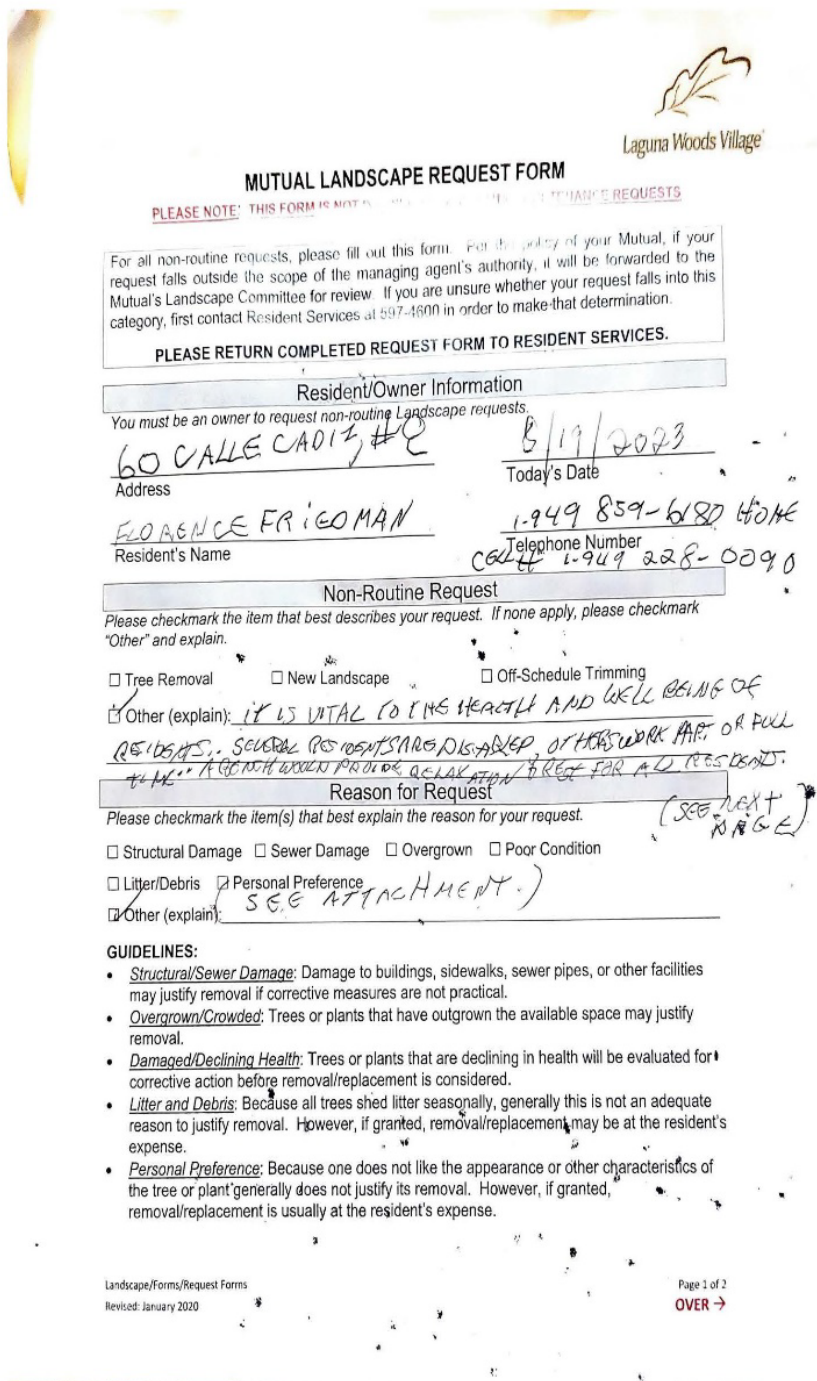 Laguna Woods Village
MUTUAL LANDSCAPE REQUEST FORM
PLEASE NOTE: THIS FORM IS NOT REQUESTS
For all non-routine requests, please fill out this form. Per the policy of your Mutual, if your
request falls outside the scope of the managing agent's authority, it will be forwarded to the
Mutual's Landscape Committee for review. If you are unsure whether your request falls into this
category, first contact Resident Services at 597-4600 in order to make that determination.
PLEASE RETURN COMPLETED REQUEST FORM TO RESIDENT SERVICES.
Resident/Owner Information
You must be an owner to request non-routine Landscape requests.
60 CALLE CADIZ, # 8/19/2023
Address Today's Date
FLORENCE FRIEDMAN 1-949 859-6180 HOME
Resident's Name Telephone Number
CELL# 1-949 228-0090
Non-Routine Request
Please checkmark the item that best describes your request. If none apply, please checkmark
"Other" and explain.
☐ Tree Removal ☐ New Landscape ☐ Off-Schedule Trimming
☑ Other (explain): IT IS VITAL TO THE HEALTH AND WELL BEING OF
RESIDENTS.. SEVERAL RESIDENTS ARE DISABLED, OTHERS WORK PART OR FULL
TIME.. A BENCH WOULD PROVIDE RELAXATION & REST FOR ALL RESIDENTS.
Reason for Request
(SEE NEXT
PAGE)
Please checkmark the item(s) that best explain the reason for your request.
☐ Structural Damage ☐ Sewer Damage ☐ Overgrown ☐ Poor Condition
☐ Litter/Debris ☑ Personal Preference
☑ Other (explain): (SEE ATTACHMENT.)
GUIDELINES:
• Structural/Sewer Damage: Damage to buildings, sidewalks, sewer pipes, or other facilities
may justify removal if corrective measures are not practical.
• Overgrown/Crowded: Trees or plants that have outgrown the available space may justify
removal.
• Damaged/Declining Health: Trees or plants that are declining in health will be evaluated for
corrective action before removal/replacement is considered.
• Litter and Debris: Because all trees shed litter seasonally, generally this is not an adequate
reason to justify removal. However, if granted, removal/replacement may be at the resident's
expense.
• Personal Preference: Because one does not like the appearance or other characteristics of
the tree or plant generally does not justify its removal. However, if granted,
removal/replacement is usually at the resident's expense.
Landscape/Forms/Request Forms Page 1 of 2
Revised: January 2020 OVER →